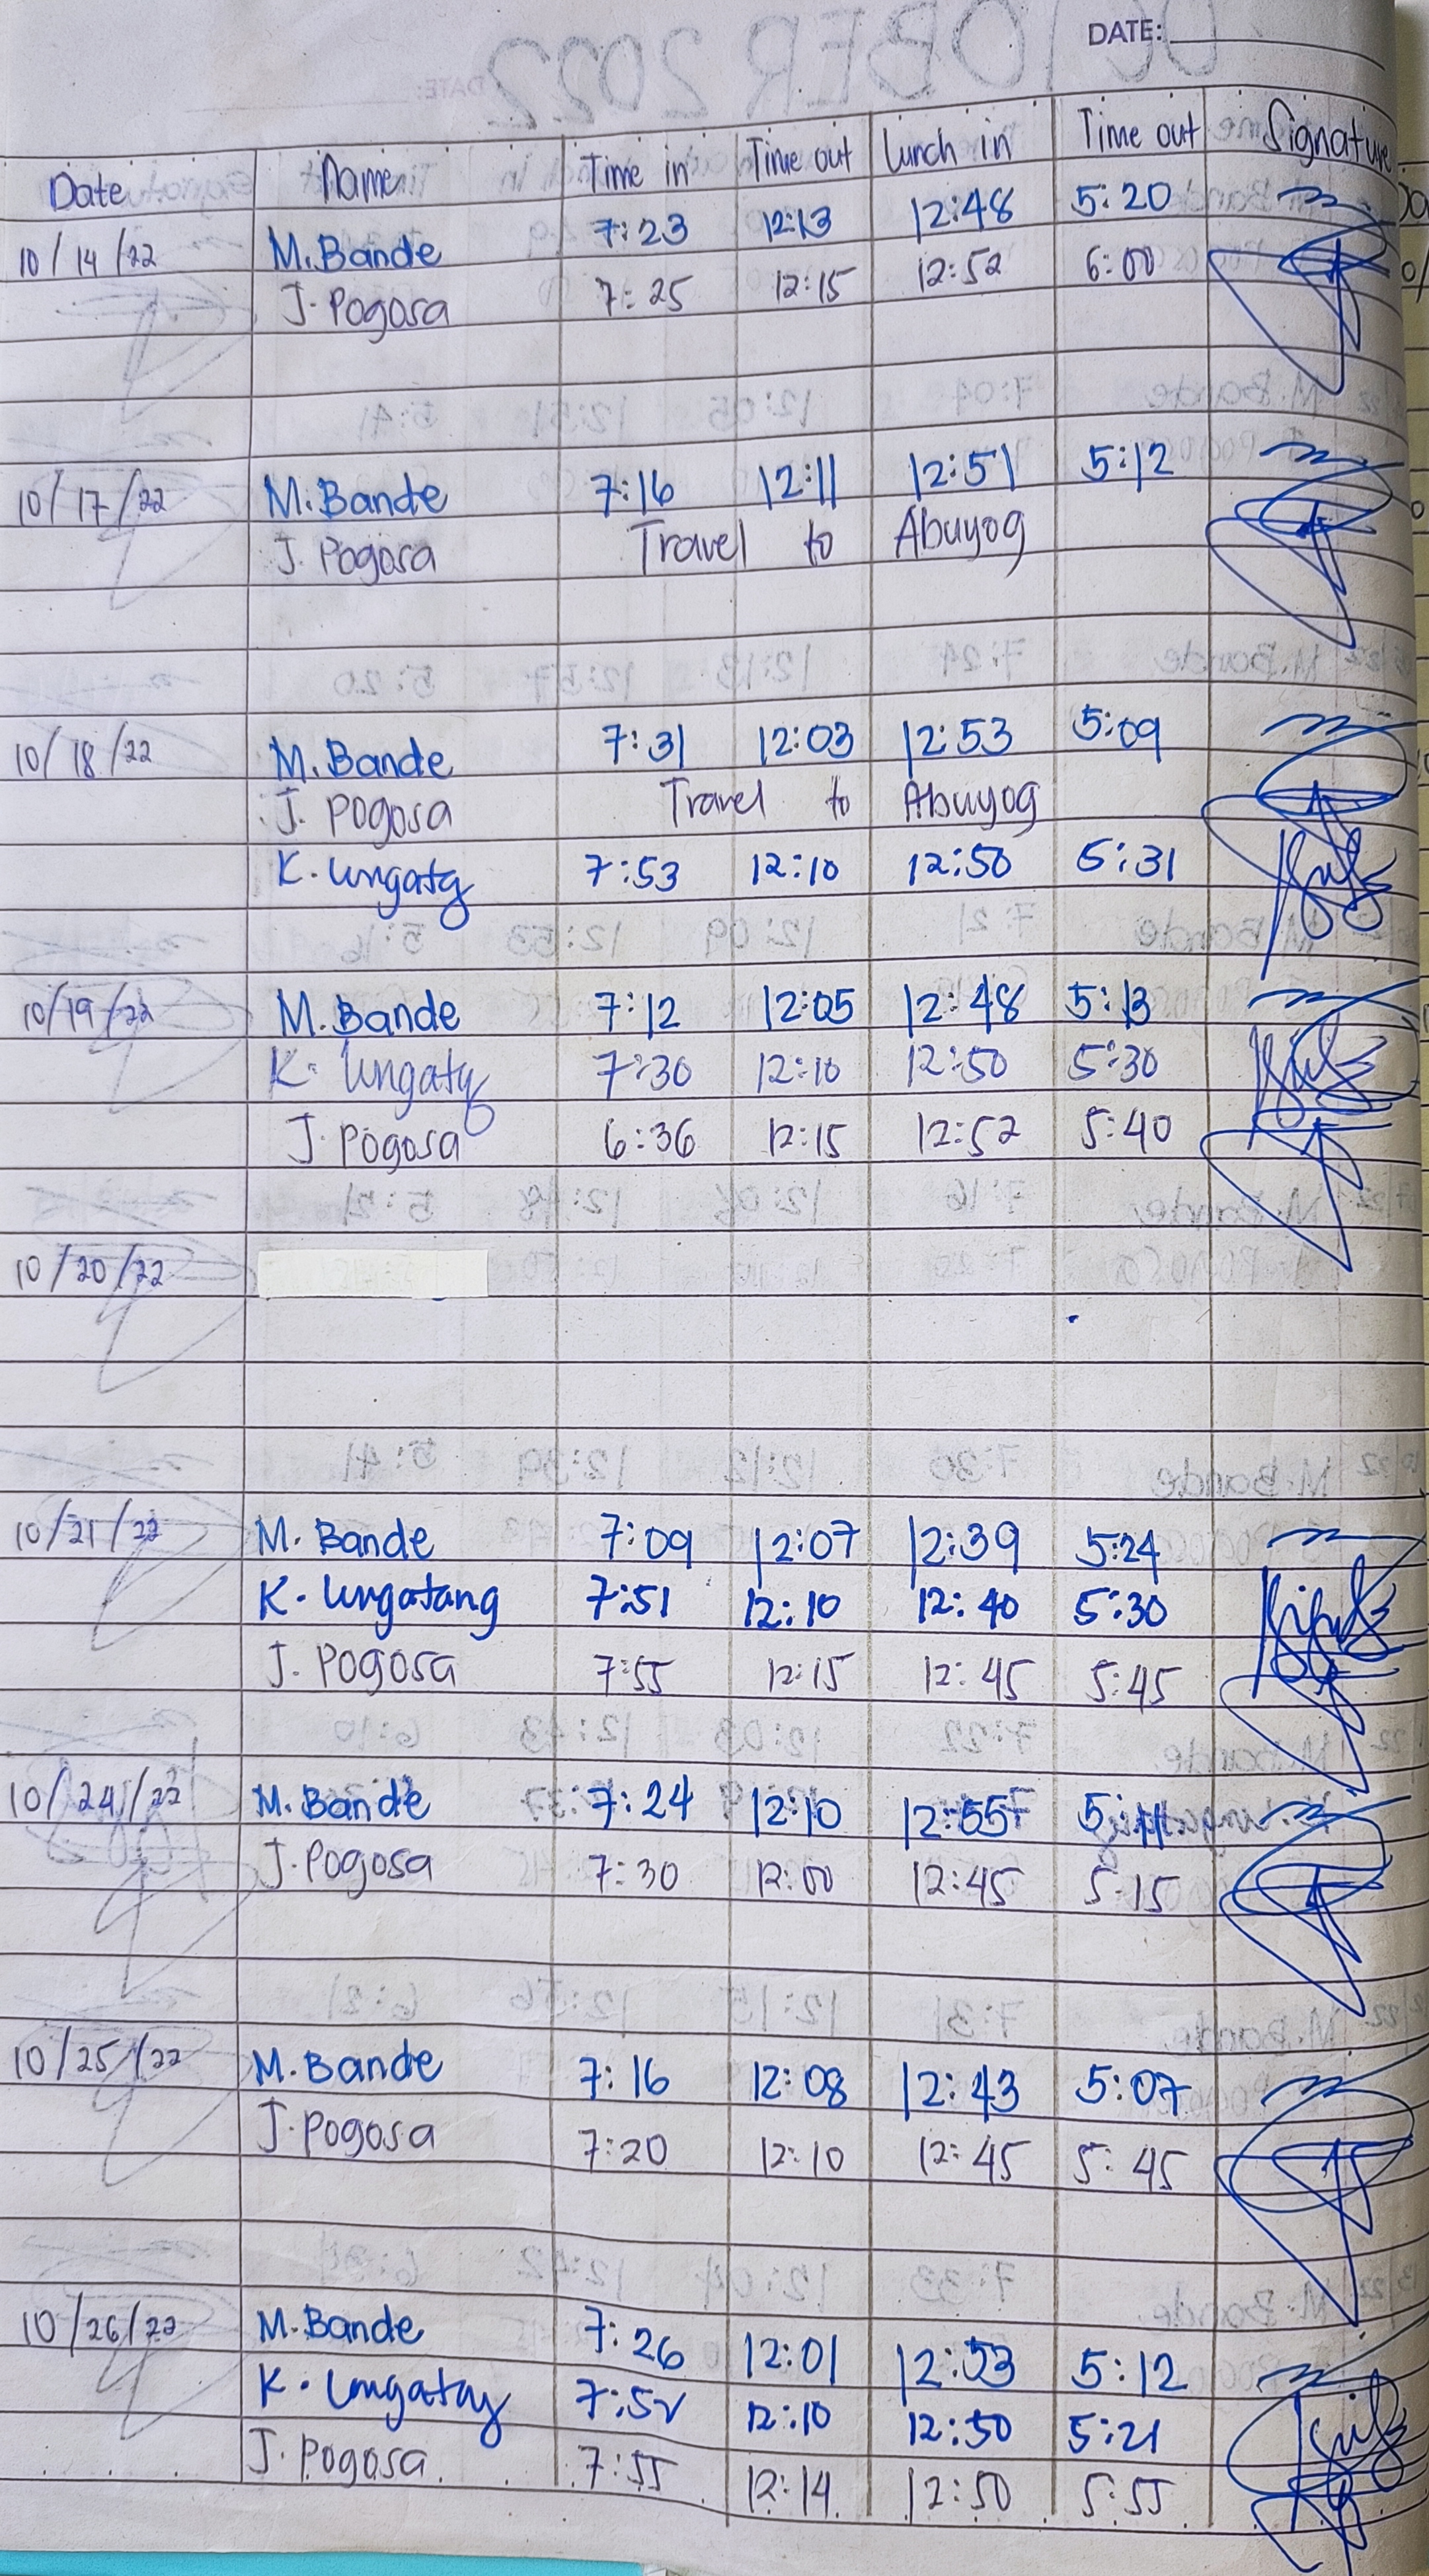 DATE:
Date Name Time in Time out Lunch in Time out Signature
10/14/22 M. Bande 7:23 12:13 12:48 5:20
J. Pogosa 7:25 12:15 12:52 6:00
10/17/22 M. Bande 7:16 12:11 12:51 5:12
J. Pogosa Travel to Abuyog
10/18/22 M. Bande 7:31 12:03 12:53 5:09
J. Pogosa Travel to Abuyog
K. 7:53 12:10 12:50 5:31
10/19/22 M. Bande 7:12 12:05 12:48 5:13
K. 7:30 12:10 12:50 5:30
J. Pogosa 6:36 12:15 12:52 5:40
10/20/22
10/21/22 M. Bande 7:09 12:07 12:39 5:24
K. Ungatang 7:51 12:10 12:40 5:30
J. Pogosa 7:55 12:15 12:45 5:45
10/24/22 M. Bande 7:24 12:10 12:55 5:11
J. Pogosa 7:30 12:00 12:45 5:15
10/25/22 M. Bande 7:16 12:08 12:43 5:07
J. Pogosa 7:20 12:10 12:45 5:45
10/26/22 M. Bande 7:26 12:01 12:53 5:12
K. 7:52 12:10 12:50 5:21
J. Pogosa 7:55 12:14 12:50 5:55